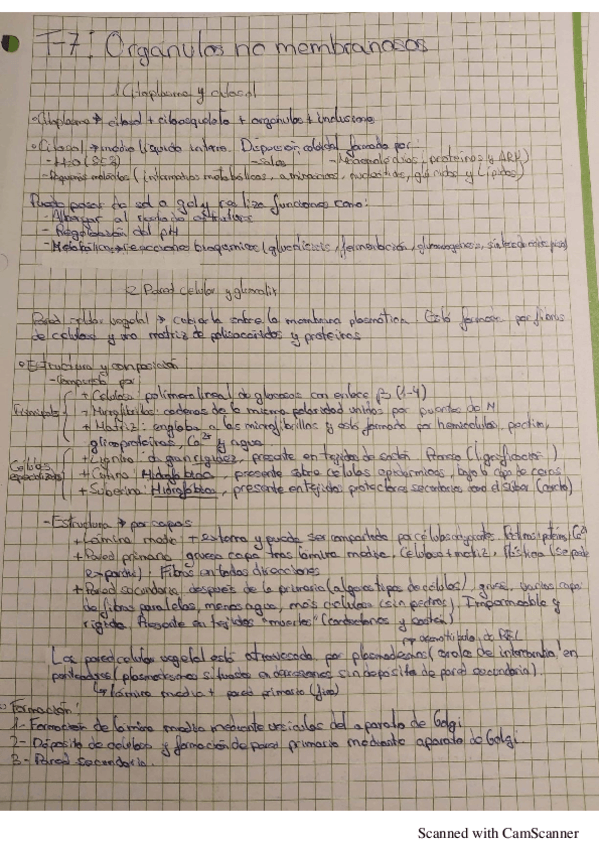 T-7: Orgánulos no membranosos
1. Citoplasma y citosol
Citoplasma → citosol + citoesqueleto + orgánulos + inclusiones
Citosol → medio líquido interno. Dispersión coloidal formado por:
- H2O (85%) - sales - Macromoléculas, proteínas y ARN
(intermediarios metabólicos, aminoácidos, nucleótidos, glúcidos y lípidos)
Puede pasar de sol a gel y realiza funciones como:
- Albergar al
- Regulación del pH
- Metabólica → reacciones bioquímicas (glucólisis, fermentación,
2. Pared celular y glucocalix
Pared celular vegetal → cubierta sobre la membrana plasmática. Está formada por fibras
de celulosa y una matriz de polisacáridos y proteínas
Estructura y composición
- Compuesta por
Principales
+ Celulosa: polímero lineal de glucosas con enlace β (1-4)
+ Microfibrillas: cadenas de la misma polaridad unidas por puentes de H
+ Matriz: engloba a las microfibrillas y está formada por hemicelulosa, pectina,
glicoproteínas, Ca2+ y agua
Células especializadas
+ Lignina: da gran rigidez, presente en tejidos de sostén. (Lignificación)
+ Cutina: Hidrófoba, presente sobre células epidérmicas, bajo la capa de ceras
+ Suberina: Hidrófoba, presente en tejidos protectores secundarios como el súber (corcho)
- Estructura → por capas
+ Lámina media: + externa y puede ser compartida por células adyacentes. Ca2+
+ Pared primaria: gruesa capa tras lámina media. Celulosa + matriz. Plástica (se puede
expandir). Fibras en todas direcciones
+ Pared secundaria: después de la primaria (algunos tipos de células), gruesa, varias capas
de fibras paralelas, menos agua, más celulosa (sin pectinas). Impermeable y
rígida. Presente en tejidos "muertos" (conductores y sostén)
La pared celular vegetal está atravesada por plasmodesmos
punteaduras (plasmodesmos situados en depresiones sin depósito de pared secundaria).
↳ lámina media + pared primaria (fina)
Formación:
1- Formación de lámina media mediante vesículas del aparato de Golgi
2- Depósito de celulosa y formación de pared primaria mediante aparato de Golgi.
3- Pared secundaria.
Scanned with CamScanner